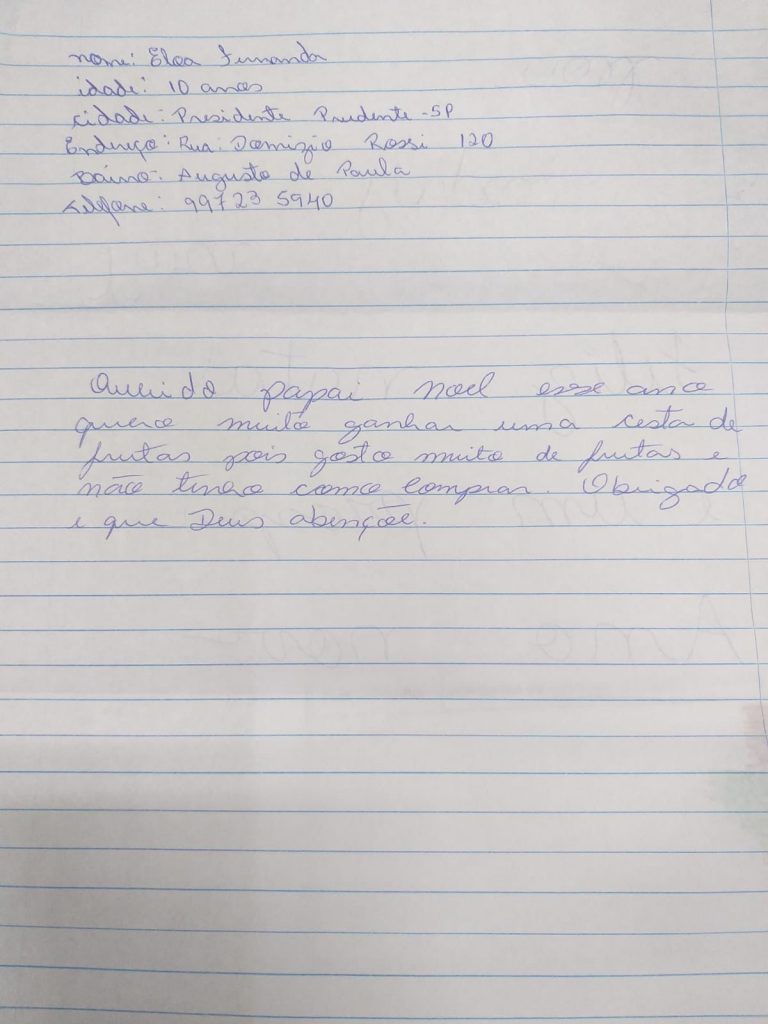 nome: Eloa Fernanda
idade: 10 anos
cidade: Presidente Prudente - SP
Endereço: Rua: Domizio Rossi 120
Bairro: Augusto de Paula
Telefone: 99723 5940
Querido papai noel esse ano
quero muito ganhar uma cesta de
frutas pois gosto muito de frutas e
não tenho como comprar. Obrigado
e que Deus abençõe.